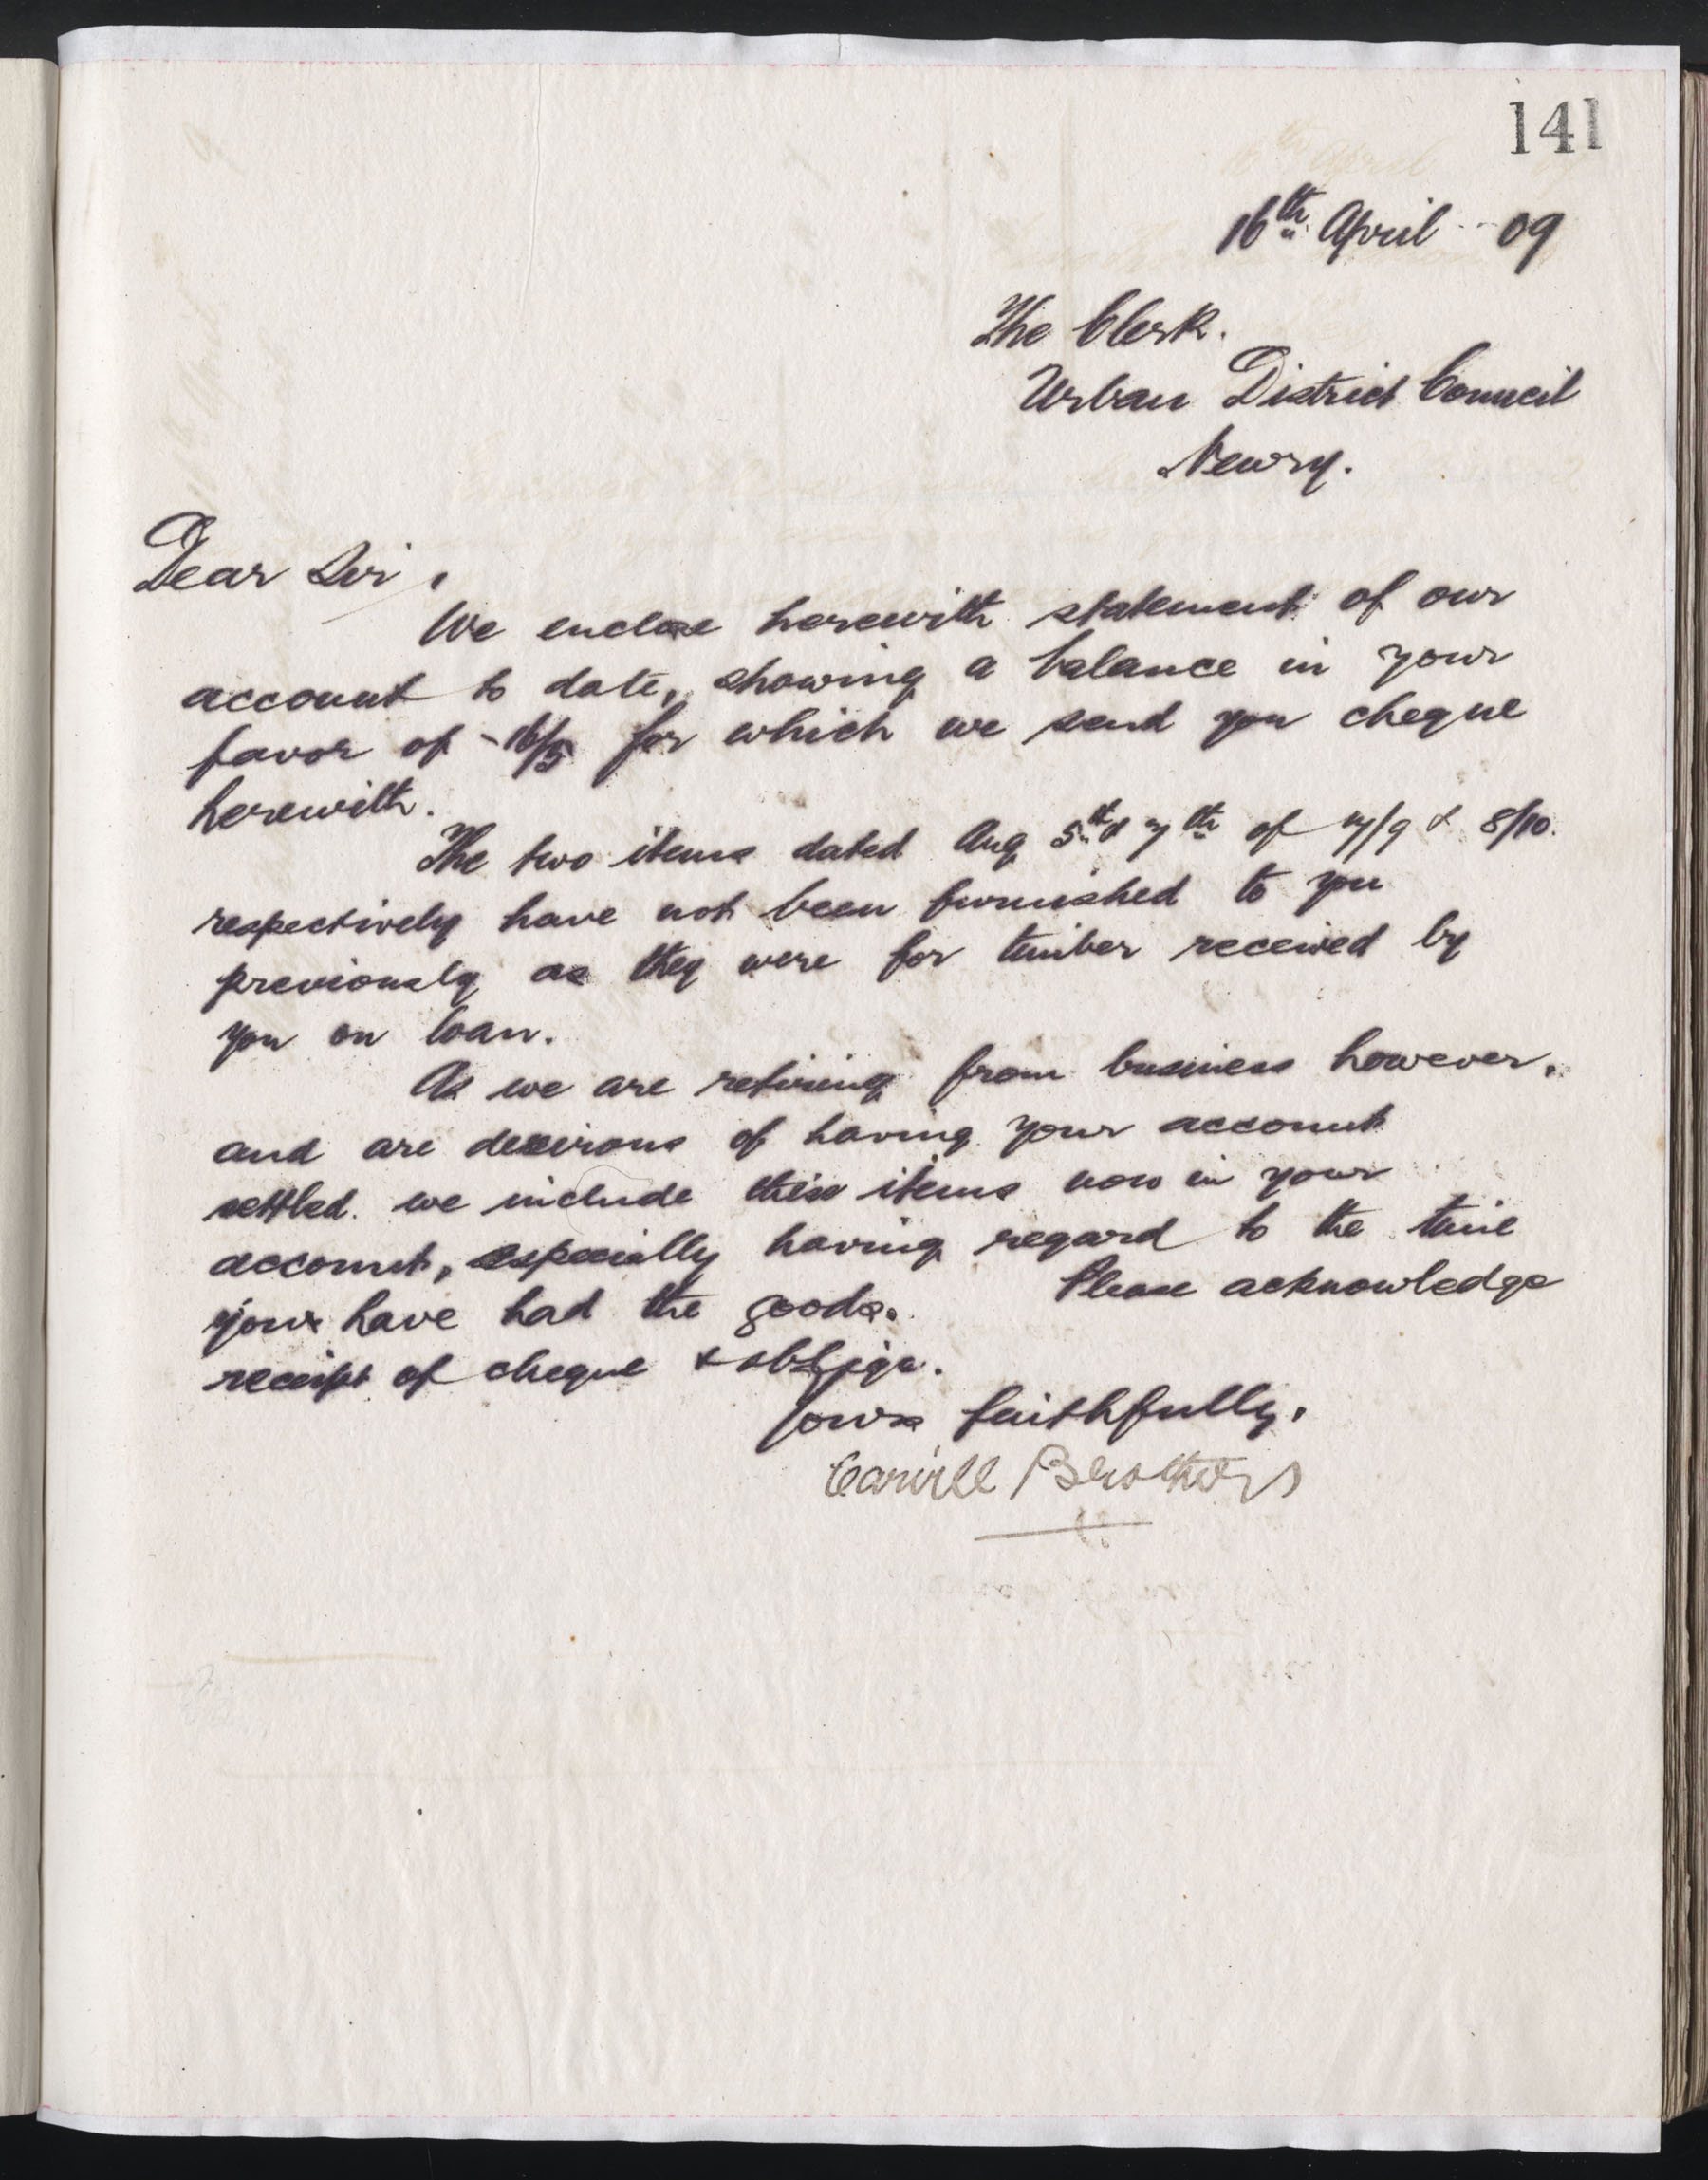 141
16th April 09
The Clerk.
Urban District Council
Newry.
Dear Sir,
We enclose herewith statement of our
account to date, showing a balance in your
favor of -16/5 for which we send you cheque
herewith.
The two items dated Aug 5th & 7th of 7/9 & 8/10.
respectively have not been furnished to you
previously as they were for timber received by
you on loan.
As we are retiring from business however,
and are desirous of having your account
settled. we include these items now in your
account, especially having regard to the time
your have had the goods. Please acknowledge
receipt of cheque & oblige.
Yours faithfully,
Carvill Brothers